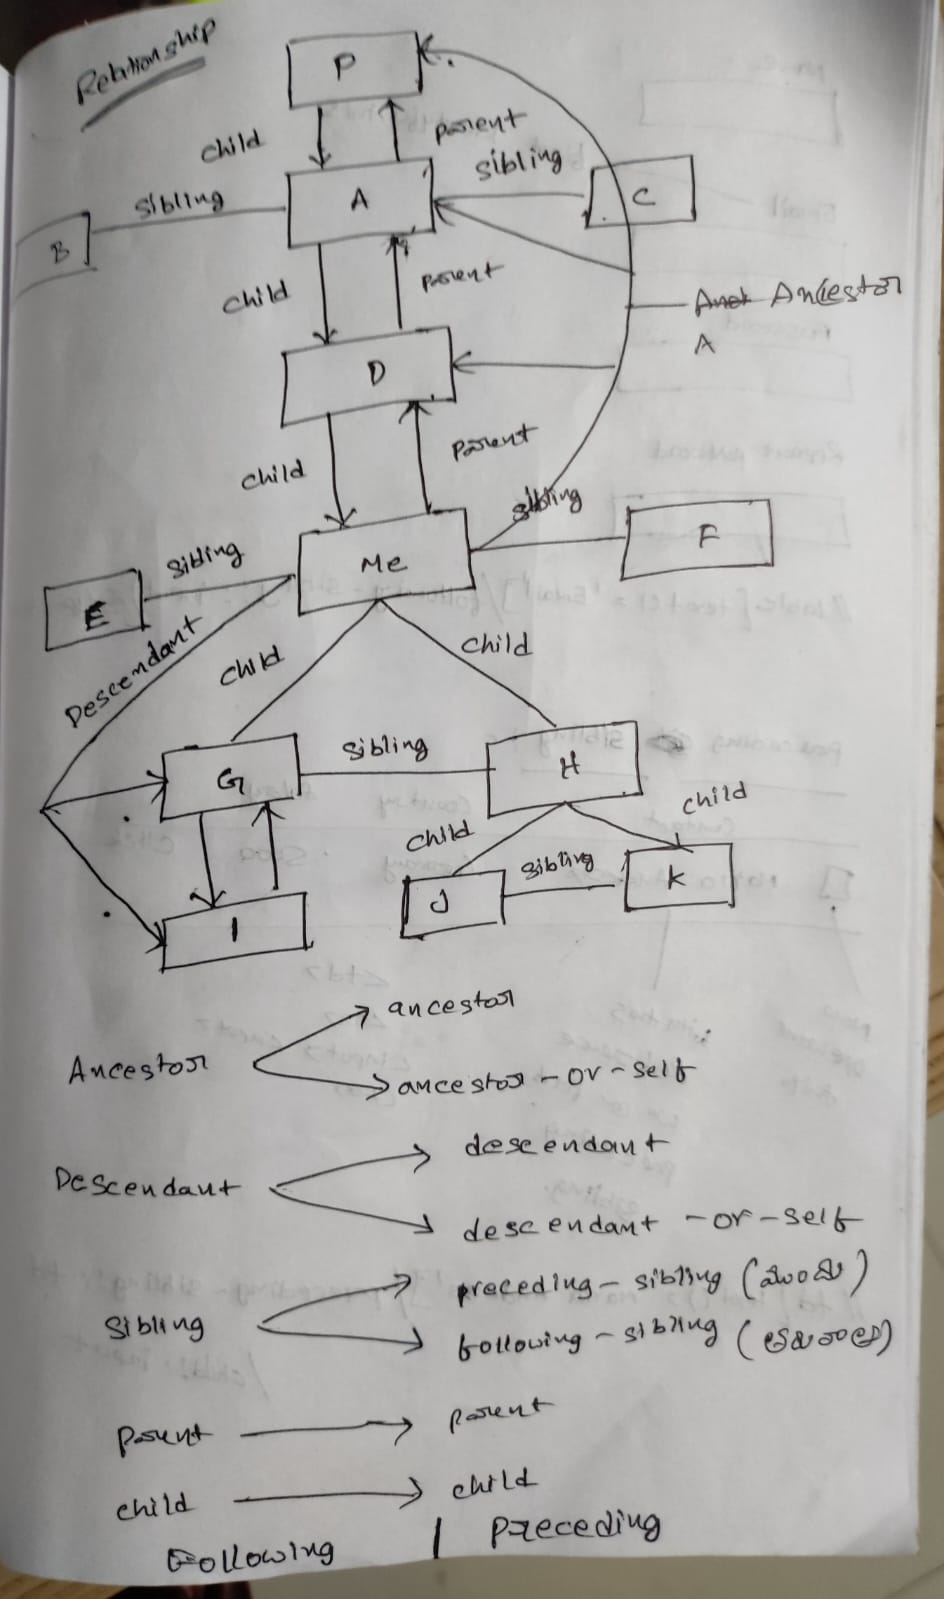 Relationship
P
child
parent
sibling
sibling
A
C
B
child
parent
Ancestor
A
D
child
parent
sibling
sibling
Me
F
E
Descendant
child
child
G
sibling
H
child
child
sibling
J
K
I
Ancestor
ancestor
ancestor - or - self
Descendant
descendant
descendant - or - self
Sibling
preceding - sibling
following - sibling
parent
parent
child
child
Following | Preceding